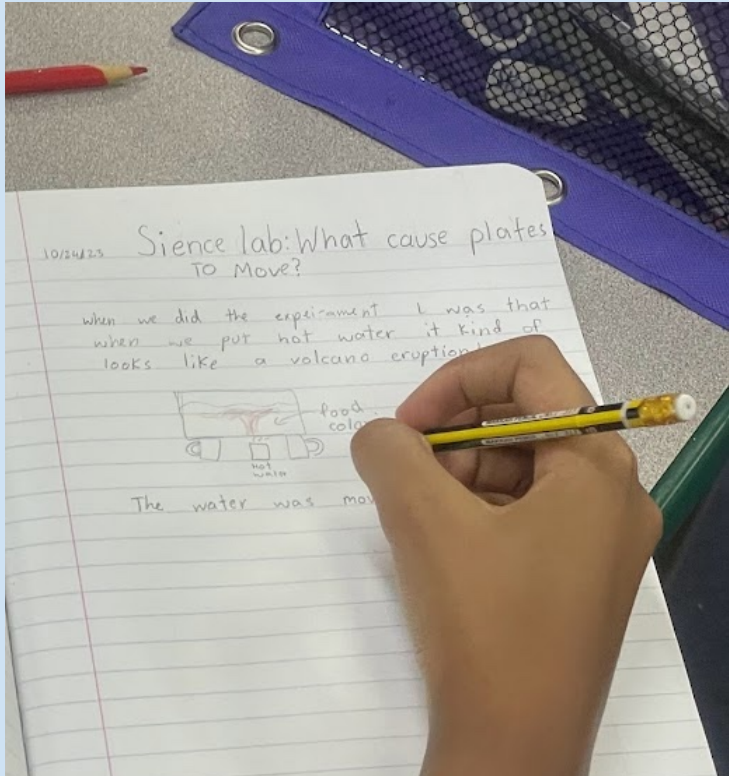 10/24/23 Sience lab: What cause plates
TO Move?
when we did the expeirament I was that
when we put hot water it kind of
looks like a volcano eruption
food
Hot
water
The water was